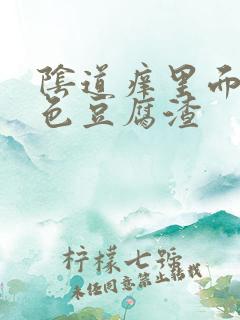 陰道痒里面
色豆腐渣
柠檬七號
未经同意禁止转载